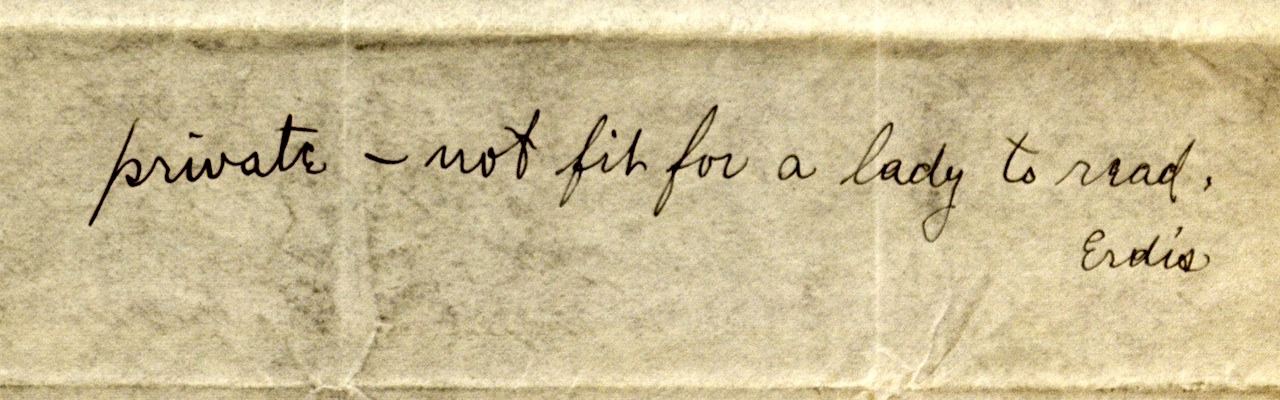 private – not fit for a lady to read.
Erdis